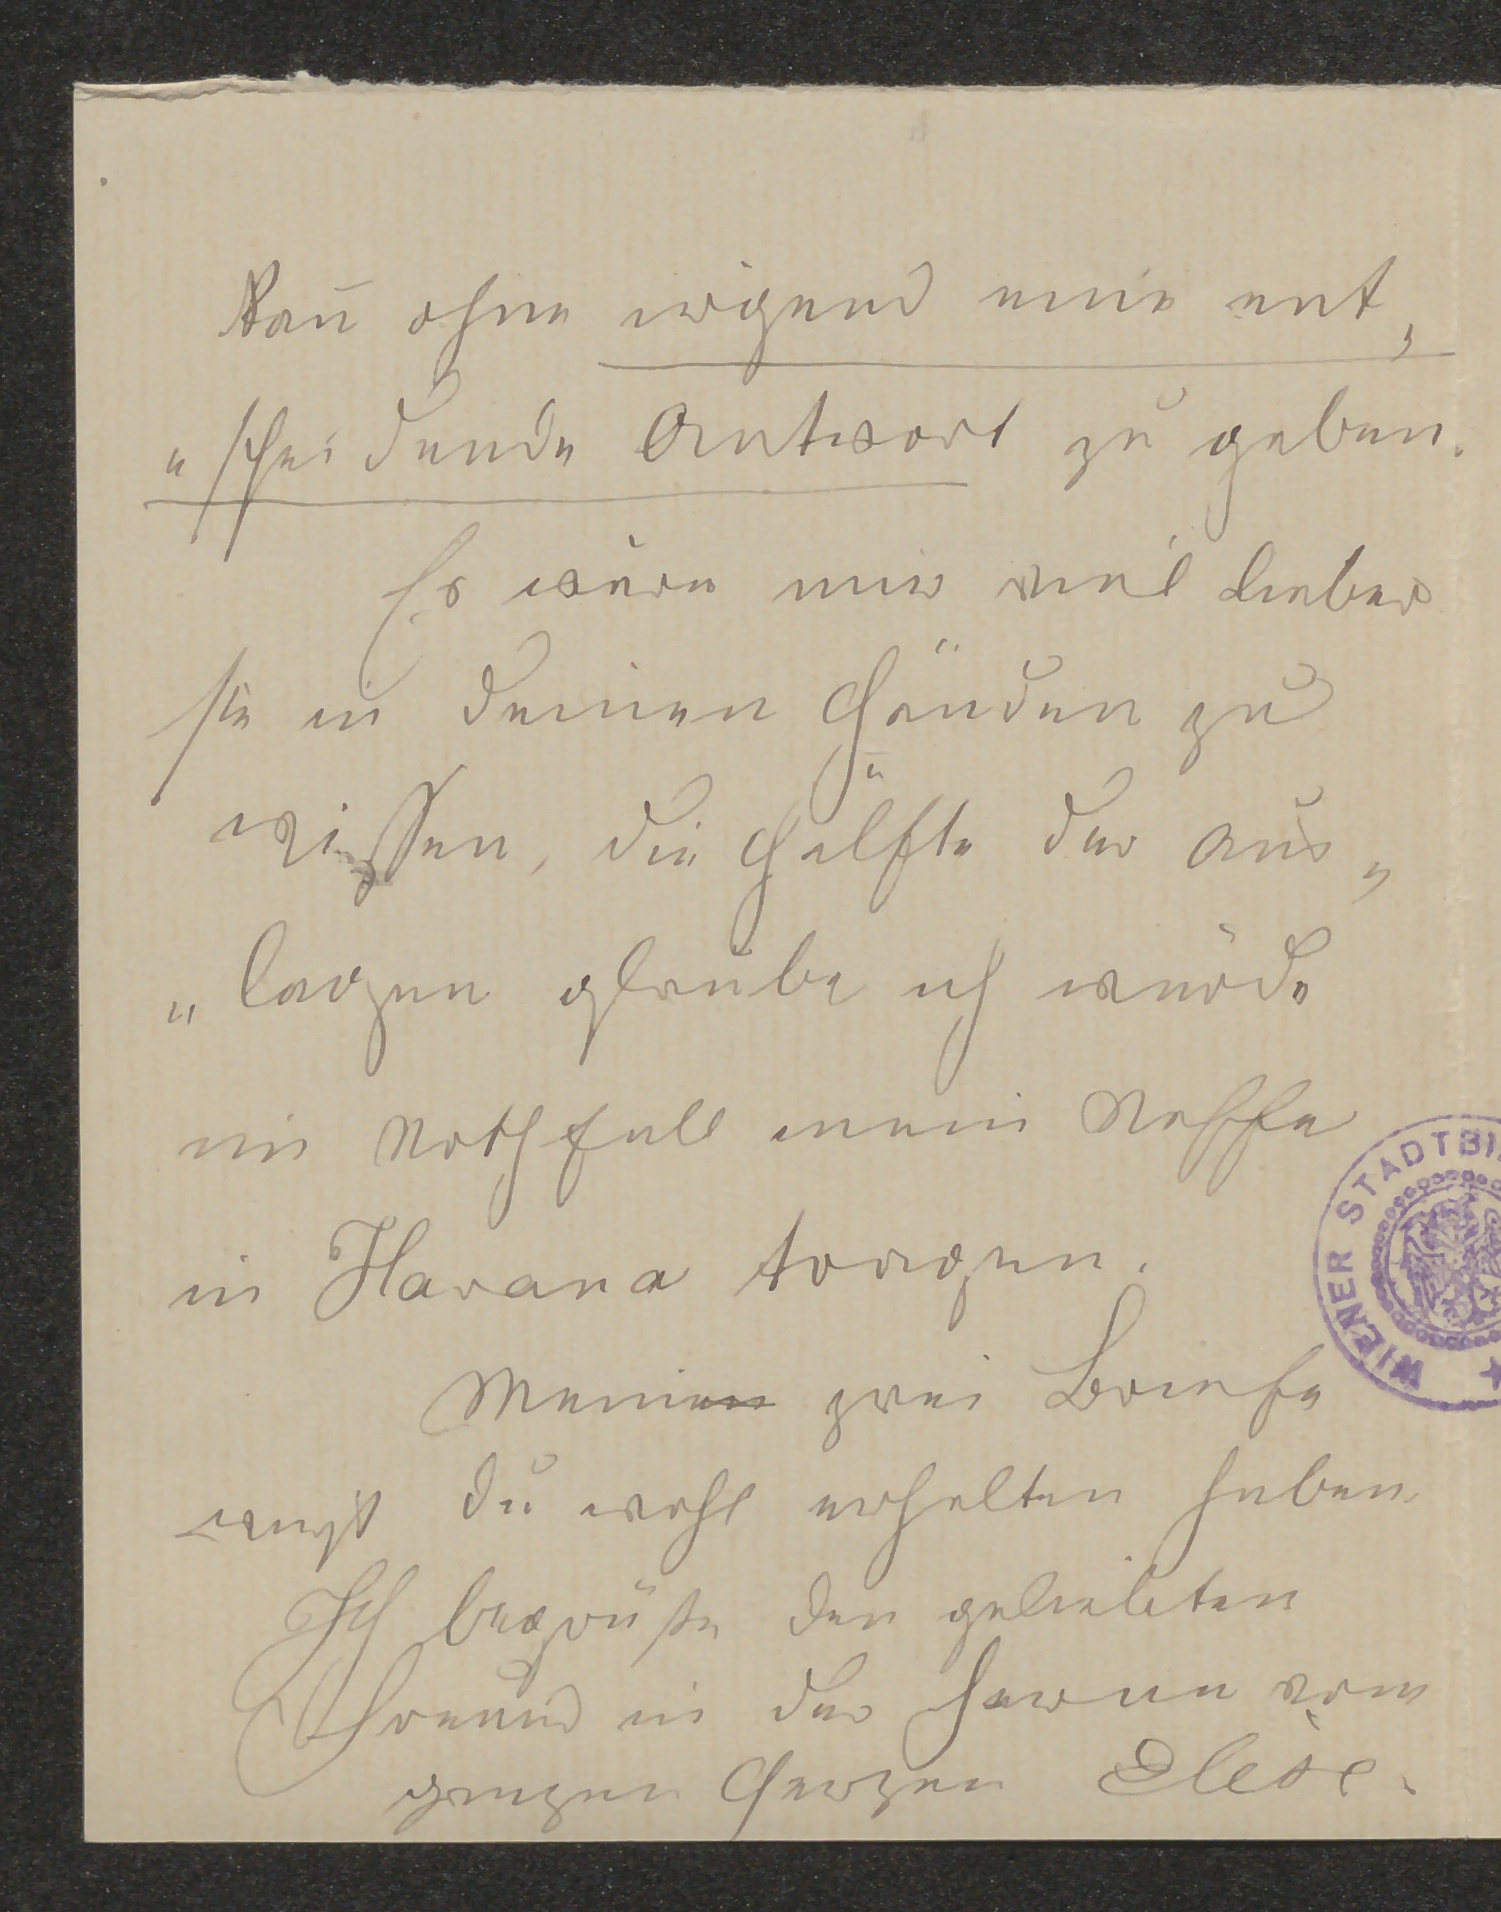 kan̄ ohne irgend eine ent„
„scheidende Antwort zu geben.
Es wäre mir viel lieber
sie in deinen Händen zu
wissen, die Hälfte der Aus„
„lagen glaube ich würde
im Nothfall mein Neffe
in Havana tragen.
Meinen zwei Briefe
wirst du wohl erhalten haben
Ich begrüße den geliebten
Freund in der Ferne vom
ganzen Herzen Elise.
WIENER STADTBI